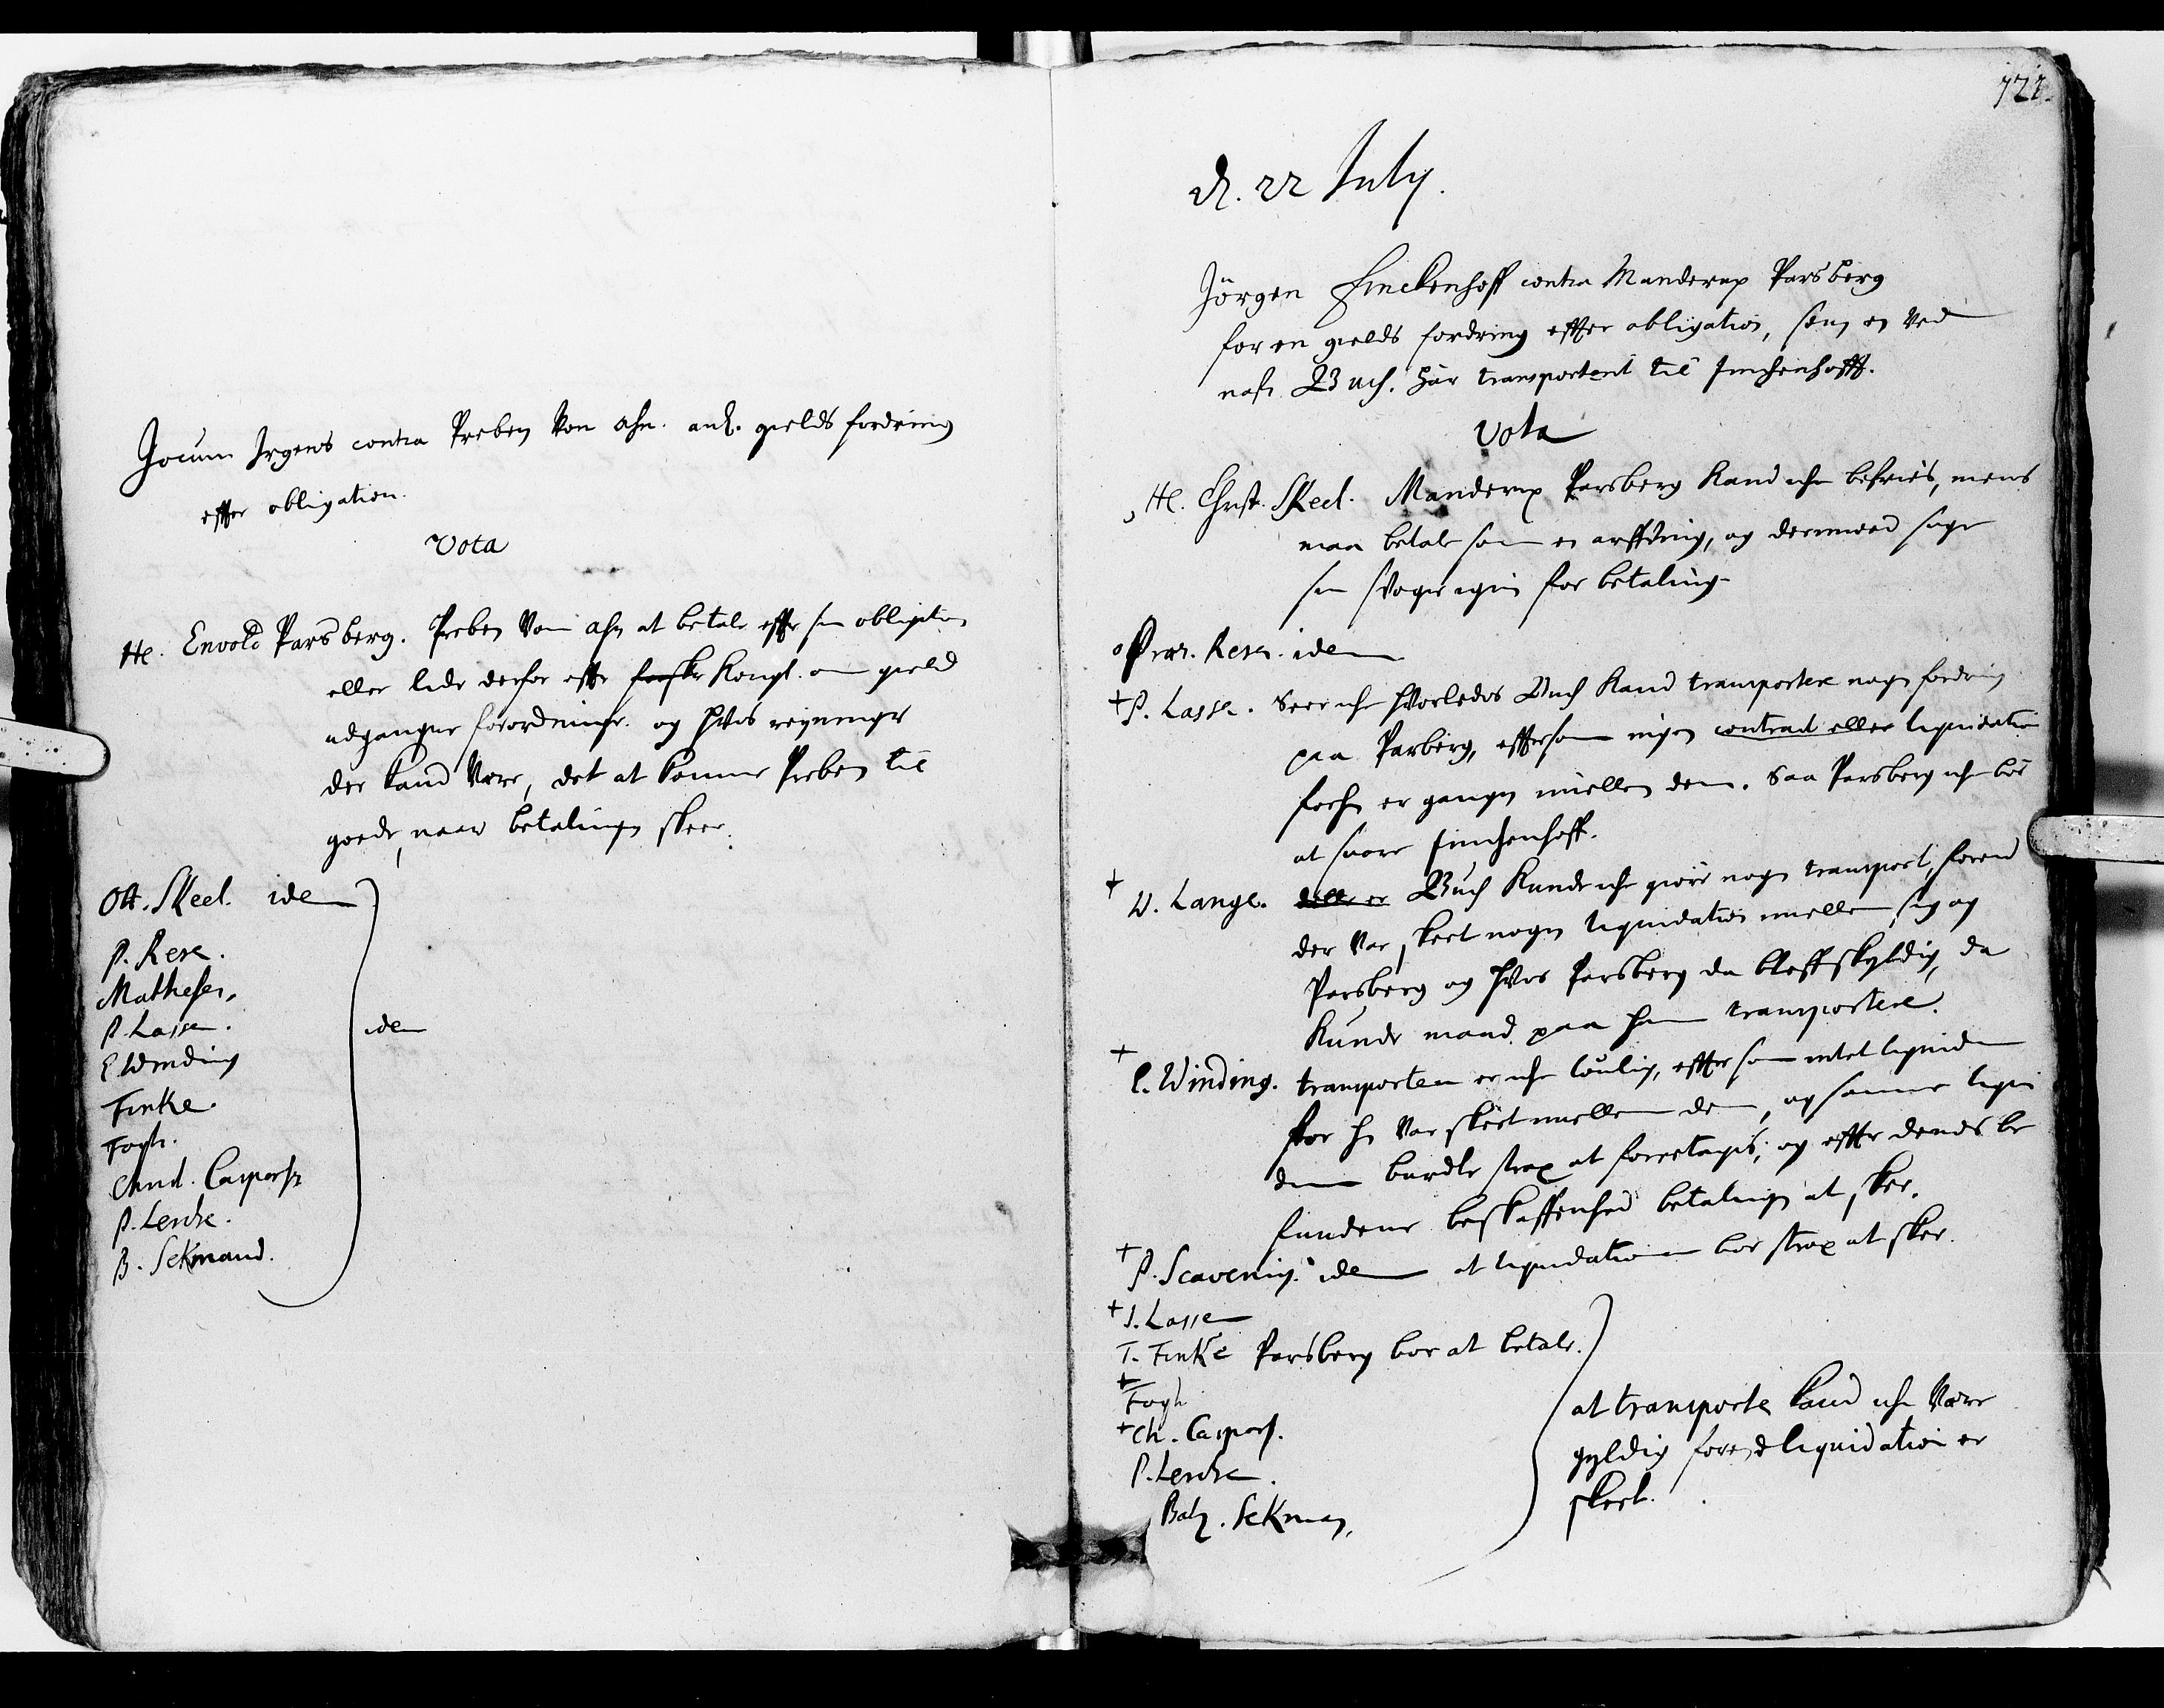 Jocum Irgens contra Preben Von Ahn. anl. gields fordring
effter obligation.
Vota
He. Envold Parsberg. Preben Von Ahn at betale effter sin obligation
eller lide derfor effter Kongl. om gield
udgangne forordninger. og hvis regninger
der kand være, det at komme Preben til
gode, naar betalingen skeer.
Ott. Skeel. idem
P. Rese.
Mathesen.
P. Lassen. idem
E Winding
Finke.
Fogh.
Christ. Caspersen
P. Lerche.
B. Sekmand.
721.
d. 22 July.
Jörgen Finckenhoff contra Manderup Parsberg
for en gields fordring effter obligation, som en ved
nafn Buch. har transporterit til Finchenhoff.
Vota
He. Christ. Skeel. Manderup Parsberg kand iche befries, mens
maa betale som en arffving, og dermeed søge
sin Svoger igien for betaling
Præs. Resen. idem
+ P. Lasse. Seer iche hvorledes Buch kand transportere nogen fordring
paa Parberg, effterson ingen contract eller liquidation
forhen er gangen imellem dem. Saa Parsberg iche bör
at svare Finchenhoff.
+ W. Lange. Buch kunde iche giöre nogen transport, forend
der var skeet nogen liquidation imellem sig og
Parsberg og hvis Parsberg da bleff skyldig, da
kunde mand paa ham transportere.
+ E. Winding. transporten er iche loulig, efftersom intet liquidation
for hen var skeet imellem dem, og samme liqui
dation burde strax at foretages; og effter dends be
fundene beskaffenhed betalingen at skee.
+ P. Scavenig. idem at liquidationen bör strax at skee.
+ J. Lassen
T. Finke Parsberg bör at betale.
+ Fogh
+ Ch. Caspers.
P. Lerche.
Balz. Sekman,
at transporten kand iche være
gyldig forend liquidation er
skeet.